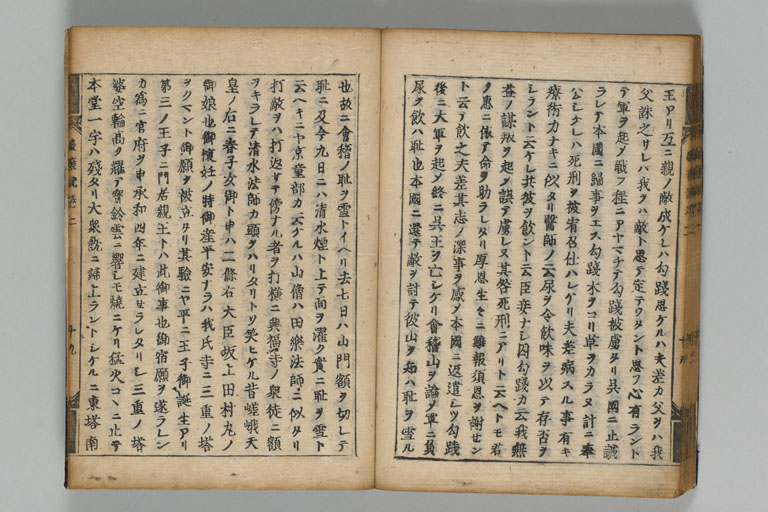 王アリ互ニ親ノ敵成ケレハ勾践思ケルハ夫差カ父ヲハ我
父誅之サレハ我ヲハ敵ト思テ定テウタント思フ心有ラント
テ軍ヲ起ノ戦フ程ニアヤマチテ勾践被虜タリ呉國ニ止誡
ラレテ本國ニ歸事ヲエス勾践木ヲコリ草ヲカラヌ計ニ奉
公シケレハ死刑ヲ被宥召仕ハレケリ夫差病スル事有キ
療術力ナキニ似タリ醫師ノ云尿ヲ令飲味ヲ以テ存否ヲ
シラント云ケレ共彼ヲ飲ント云臣妾ナシ囚勾践カ云我無
益ノ謀叛ヲ起ノ誤テ虜レヌ其咎死刑ニアリト云ヘトモ君
ノ惠ニ依テ命ヲ助ラレタリ厚恩生々ニ難報須恩ヲ謝セン
ト云テ飲之夫差其志ノ深事ヲ感ノ本國ニ返遣シツ勾践
後ニ大軍ヲ起ノ終ニ呉王ヲ亡シケリ會稽山ヲ論ノ軍ニ負
尿ヲ飲ハ耻也本國ニ還テ敵ヲ討テ彼山ヲ知ハ耻ヲ雪ル
也故ニ會稽ノ耻ヲ雪トイヘリ去七日ハ山門額ヲ切レテ
耻ニ及今九日ニハ清水煙ト上テ面ヲ濯ク實ニ耻ヲ雪ト
云ヘキニヤ京童部カ云ケルハ山僧ハ田樂法師ニ似タリ
打敵ヲハ打返サテ傍ナル者ヲ打様ニ興福寺ノ衆徒ニ額
ヲキラレテ清水法師カ頭ヲハリタリトソ笑ヒケル昔嵯峨天
皇ノ后ニ春子女御ト申ハ二條右大臣坂上田村丸ノ
御娘也御懐妊ノ時御産平安ナラハ我氏寺ニ三重ノ塔
ヲクマント御願ヲ被立タリ其驗ニヤ平ニ王子御誕生アリ
第三ノ王子ニ門居親王トハ此御事也御宿願ヲ遂ラレン
カ為ニ官府ヲ申承和四年ニ建立セラレタリシ三重ノ塔
婆空輪高ク耀テ寶鈴雲ニ響シモ燒ニケリ猛火コヽニ止テ
本堂一宇ハ殘タリ大衆既ニ歸上ラントシケルニ東塔南